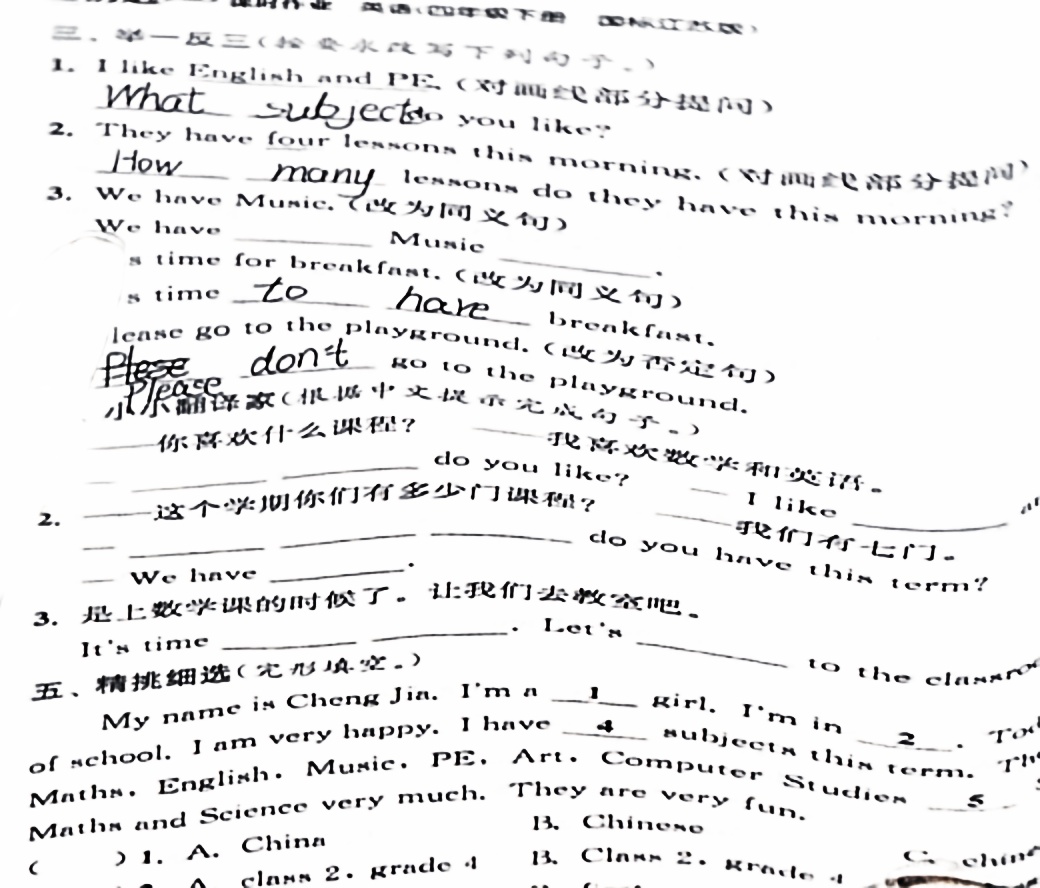 课时作业 英语(四年级下册 国标江苏版)
三、举一反三(按要求改写下列句子。)
1. I like English and PE. (对画线部分提问)
What subjects do you like?
2. They have four lessons this morning. (对画线部分提问)
How many lessons do they have this morning?
3. We have Music. (改为同义句)
We have ______ Music ______.
s time for breakfast. (改为同义句)
s time to have breakfast.
lease go to the playground. (改为否定句)
Plese don't go to the playground.
Please
小小翻译家(根据中文提示完成句子。)
——你喜欢什么课程? ——我喜欢数学和英语。
— ______ ______ do you like? — I like ______
2. ——这个学期你们有多少门课程? ——我们有七门。
— ______ ______ ______ do you have this term?
— We have ______.
3. 是上数学课的时候了。让我们去教室吧。
It's time ______ ______. Let's ______ to the classroo
五、精挑细选(完形填空。)
My name is Cheng Jia. I'm a 1 girl. I'm in 2. Tod
of school. I am very happy. I have 4 subjects this term. The
Maths, English, Music, PE, Art, Computer Studies 5
Maths and Science very much. They are very fun.
( ) 1. A. China B. Chinese C. chine
A. class 2, grade 4 B. Class 2, grade 4